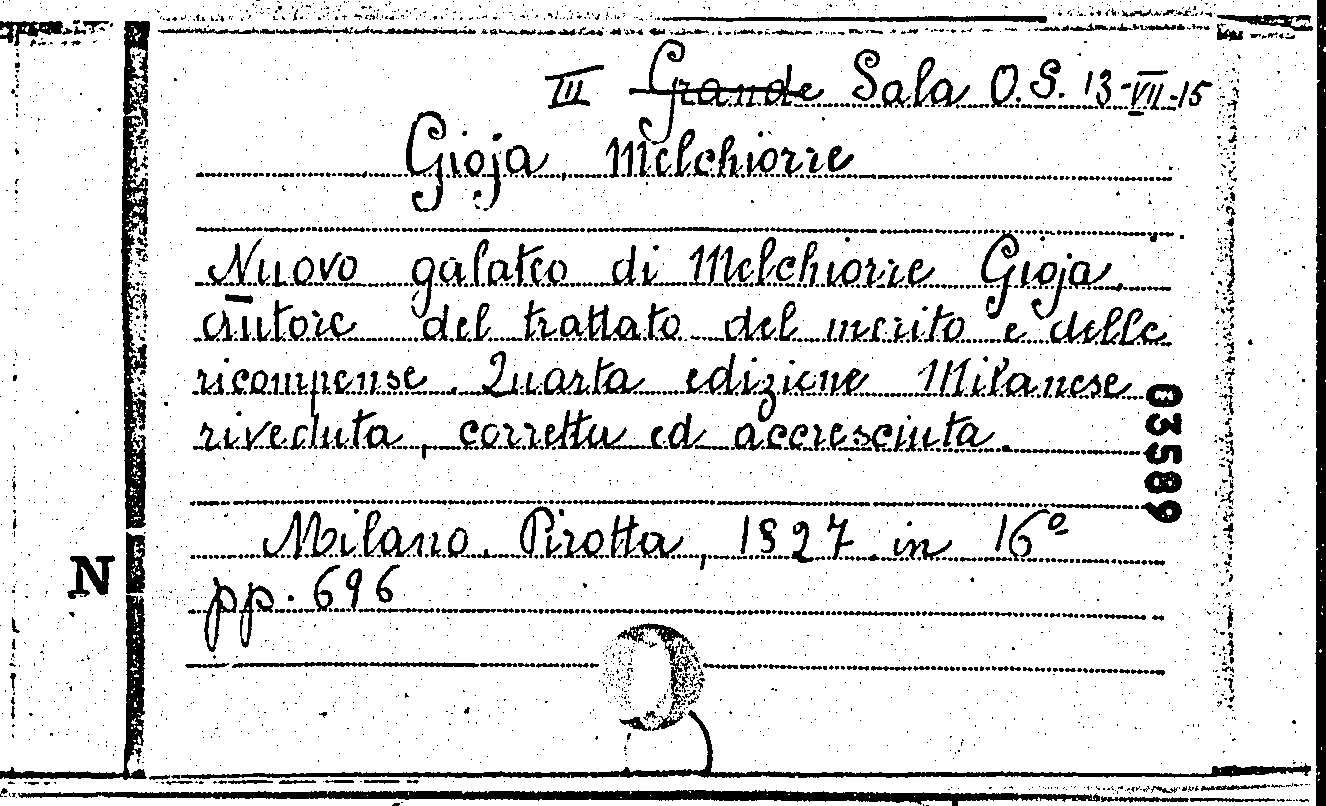 III Grande Sala O.S. 13-VII-15
Gioja, Melchiorre
Nuovo galateo di Melchiorre Gioja,
autore del trattato del merito e delle
ricompense. Quarta edizione Milanese
riveduta, corretta ed accresciuta.
03589
Milano. Pirotta, 1827 in 16º
N
pp. 696